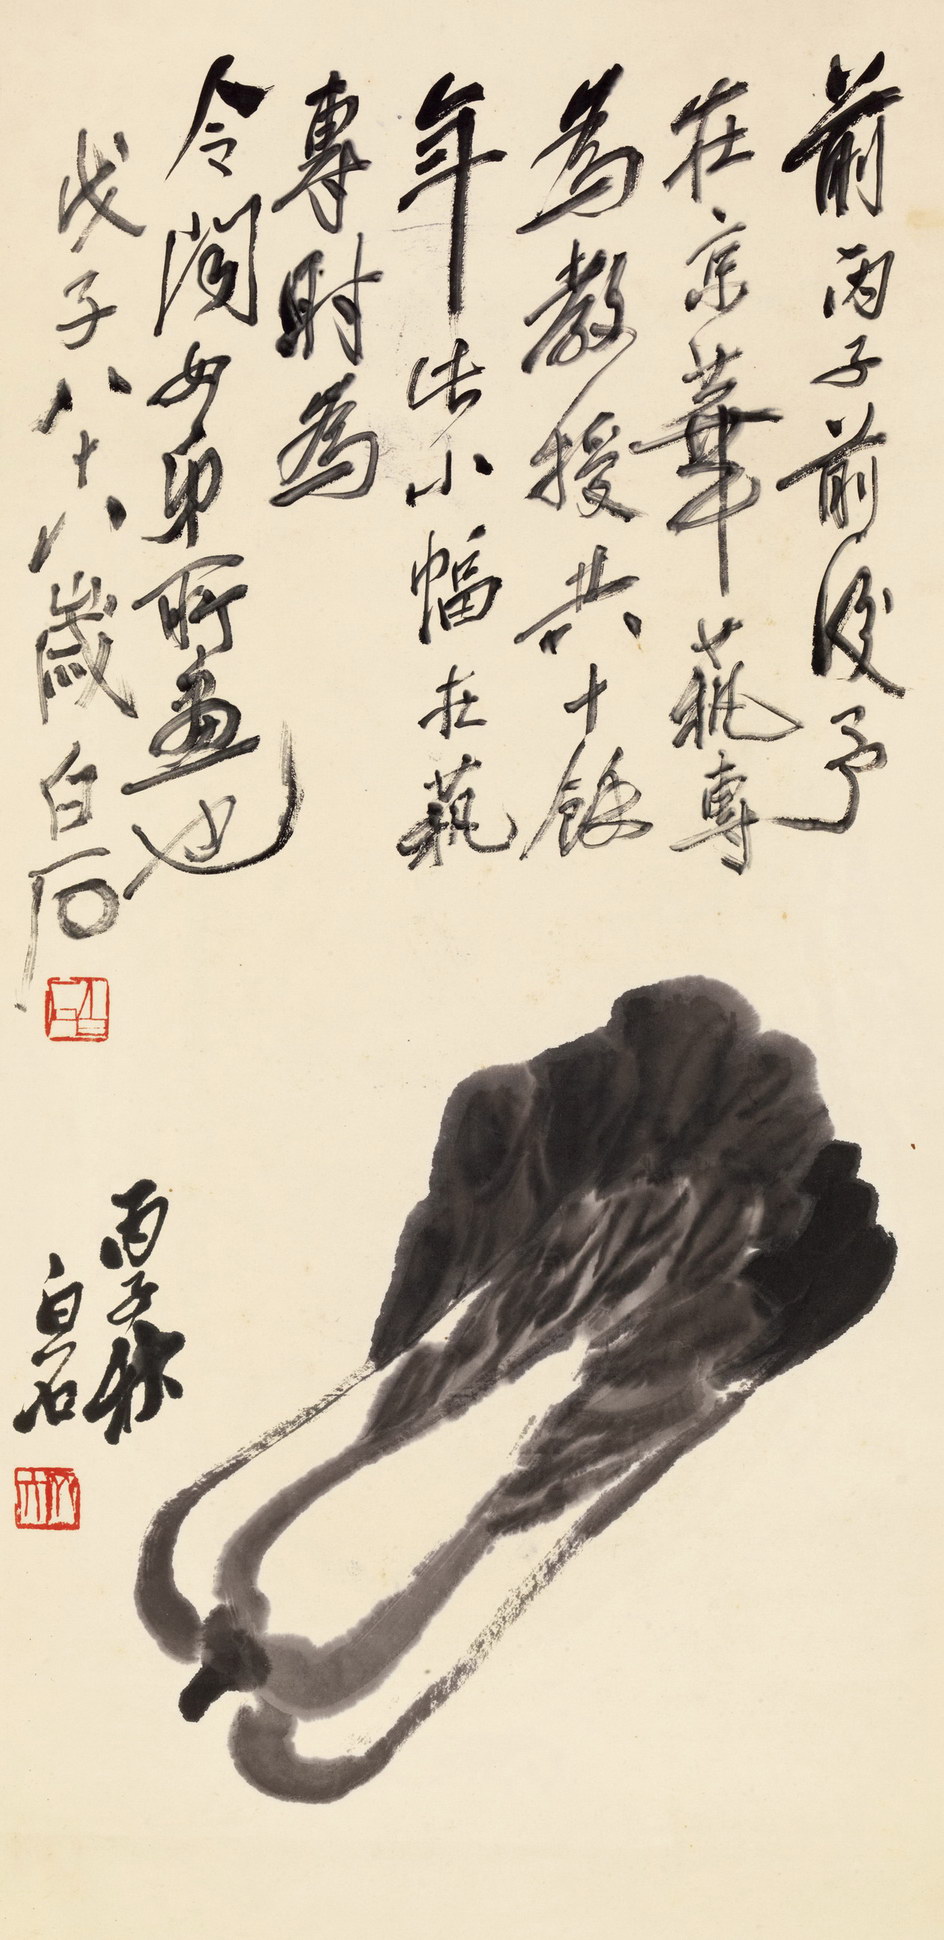 前丙子前後予
在京華藝專
為教授共十餘
年此小幅在藝
專時為
令所畫也
戊子八十八歲白石
丙子秋
白石